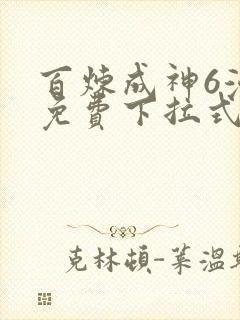 百炼成神6
免費下拉式
克林頓-萊溫